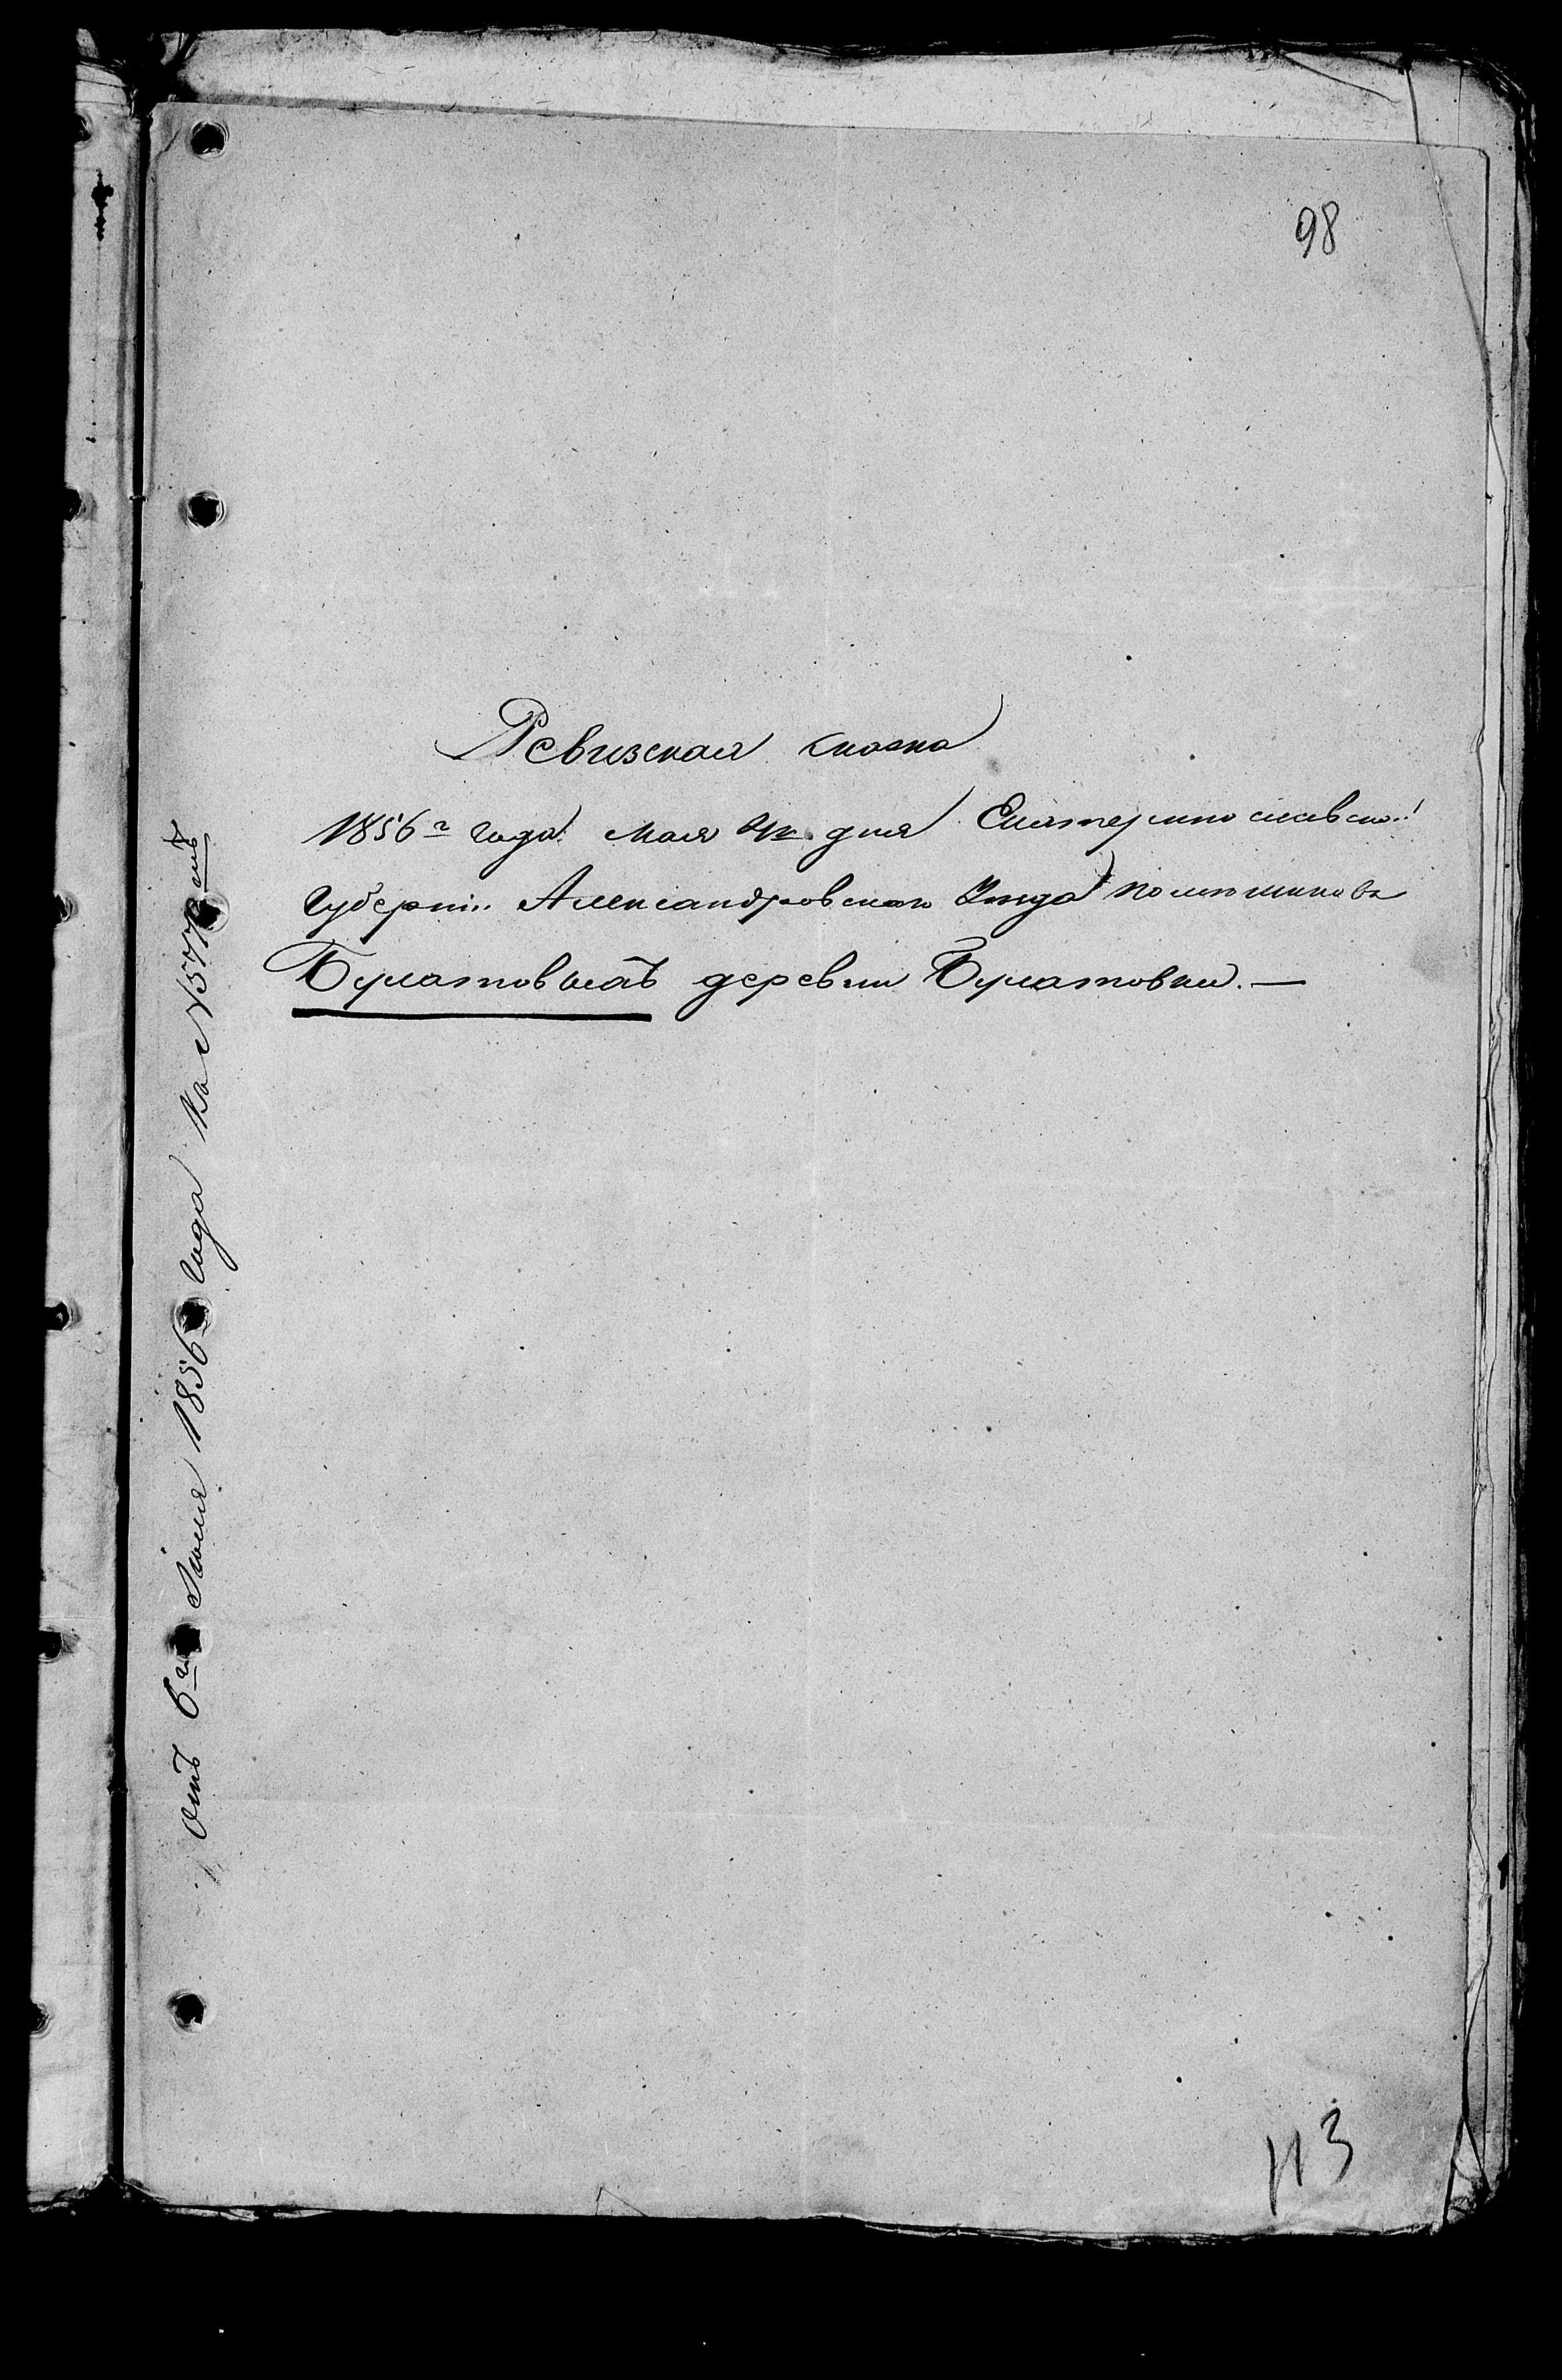 98
Ревизская сказка
1856 г года Мая дня Екатеринославской
Губернiи Александровскаго Уезда помещиковъ
Булатовыхъ деревни Булатовки. —
Отъ 6 го Iюля 1856 года На №
113